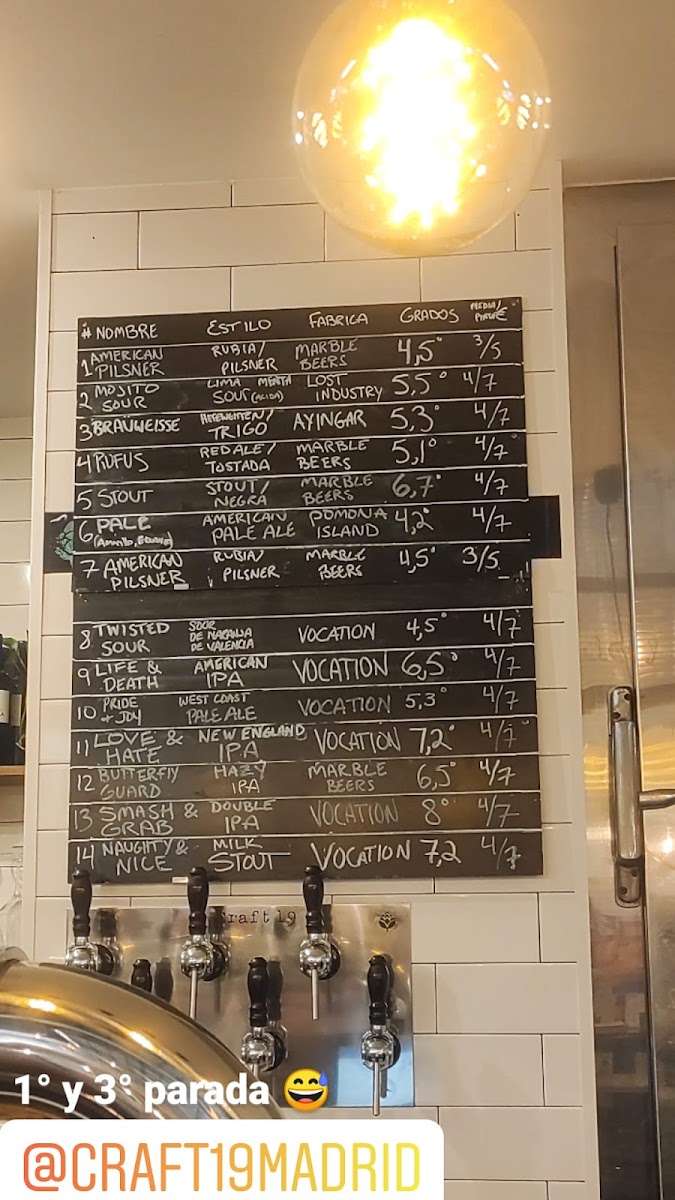 # NOMBRE ESTILO FABRICA GRADOS MEDIA/PINTA €
1 AMERICAN PILSNER RUBIA/ PILSNER MARBLE BEERS 4,5° 3/5
2 MOJITO SOUR LIMA MENTA SOUR (ACIDA) LOST INDUSTRY 5,5° 4/7
3 BRAÜWEISSE HEFEWEITEN/ TRIGO AYINGAR 5,3° 4/7
4 RUFUS RED ALE/ TOSTADA MARBLE BEERS 5,1° 4/7
5 STOUT STOUT/ NEGRA MARBLE BEERS 6,7° 4/7
6 PALE AMERICAN PALE ALE POMONA ISLAND 4,2° 4/7
7 AMERICAN PILSNER RUBIA/ PILSNER MARBLE BEERS 4,5° 3/5
8 TWISTED SOUR SOUR DE NARANJA DE VALENCIA VOCATION 4,5° 4/7
9 LIFE & DEATH AMERICAN IPA VOCATION 6,5° 4/7
10 PRIDE + JOY WEST COAST PALE ALE VOCATION 5,3° 4/7
11 LOVE & HATE NEW ENGLAND IPA VOCATION 7,2° 4/7
12 BUTTERFLY GUARD HAZY IPA MARBLE BEERS 6,5° 4/7
13 SMASH & GRAB DOUBLE IPA VOCATION 8° 4/7
14 NAUGHTY & NICE MILK STOUT VOCATION 7,2 4/7
Craft 19
1° y 3° parada 😅
@CRAFT19MADRID